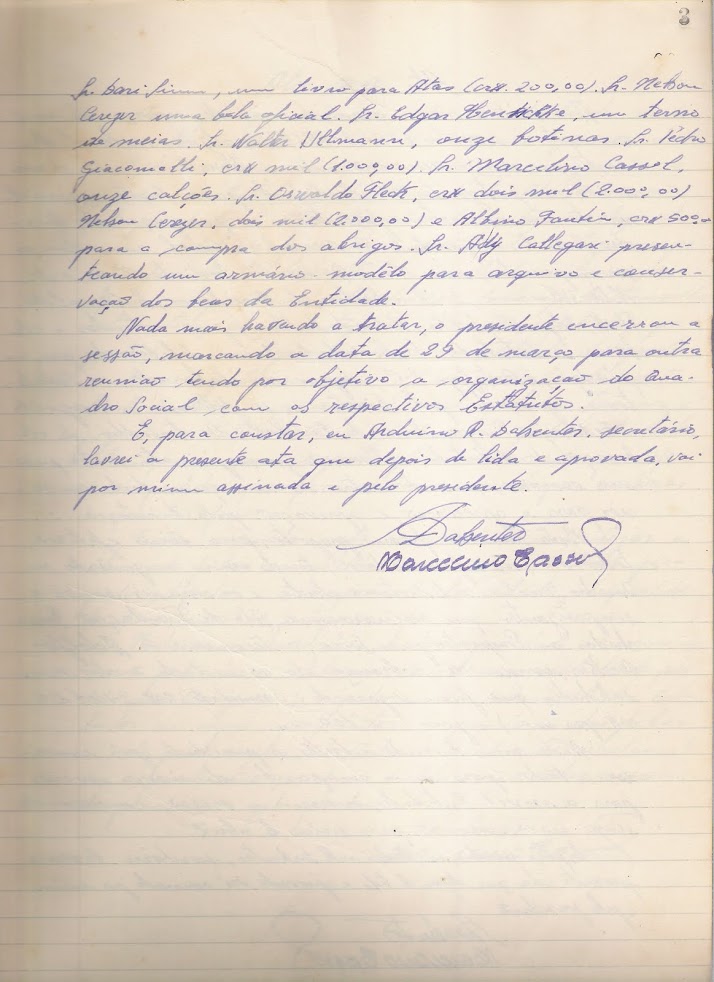 3
Sr. Dari Simm, um livro para Atas (crx. 200,00). Sr. Nelson
Cerezer uma bola oficial. Sr. Edgar, um terno
de meias. Sr. Walter Ullmann, onze botinas. Sr. Pedro
Giacomolli, crx mil (1.000,00). Sr. Marcelino Cassol,
onze calções. Sr. Oswaldo Fleck, crx dois mil (2.000,00)
Nelson Cerezer, dois mil (2.000,00) e Albino Fantin, crx 500,00
para a compra dos abrigos. Sr. Ady Callegari presen-
teando um armário modêlo para arquivo e conser-
vação dos bens da Entidade.
Nada mais havendo a tratar, o presidente encerrou a
sessão, marcando a data de 29 de março para outra
reunião tendo por objetivo a organização do Qua-
dro Social com os respectivos Estatutos.
E, para constar, eu Arduino R. Dabentes, secretário,
lavrei a presente ata que depois de lida e aprovada, vai
por mim assinada e pelo presidente.
Marcelino Cassol